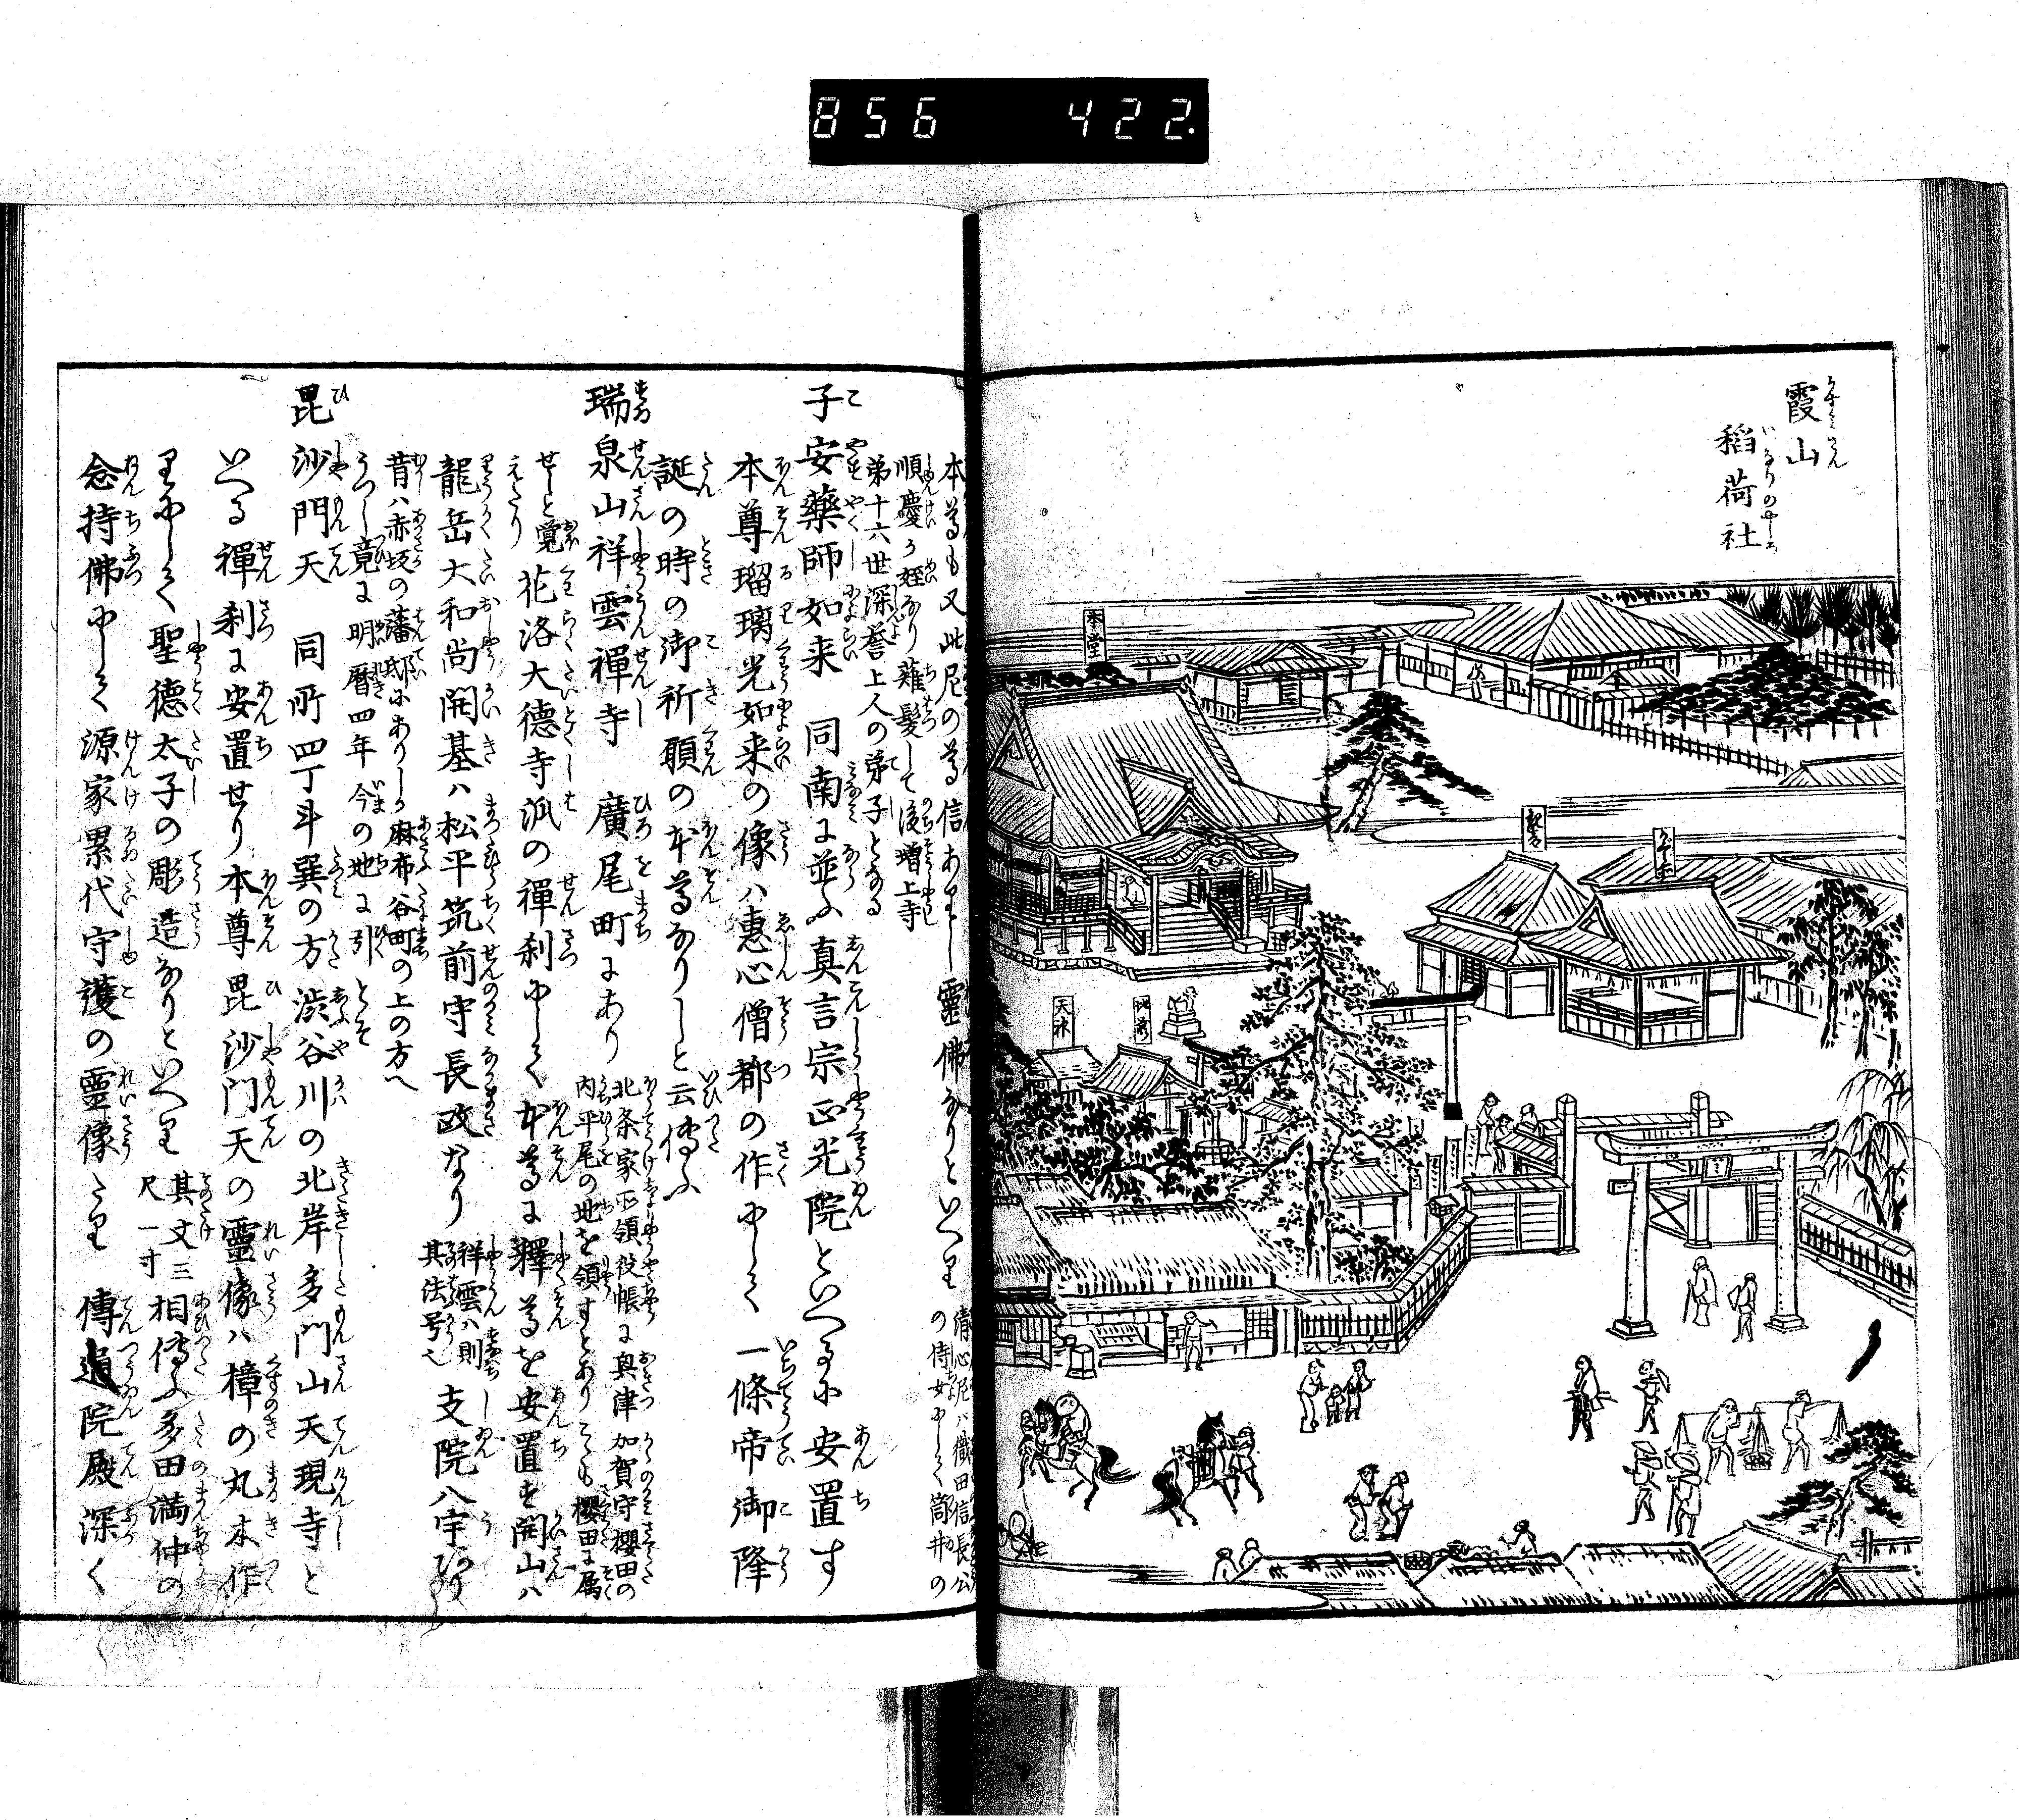 856 422.
霞山
稲荷社
本堂
天神
本尊も又此尼の尊信ありし霊佛なりといへり
清心尼ハ織田信長公
の侍女にして筒井の
順慶か姪なり薙髪して後増上寺
第十六世深誉上人の弟子となる
子安薬師如来 同南に並ふ真言宗正光院といへるに安置す
本尊瑠璃光如来の像ハ恵心僧都の作にして一條帝御降
誕の時の御祈願の本尊なりしと云傳ふ
瑞泉山祥雲禅寺 廣尾町にあり
北条家所領役帳に興津加賀守櫻田の
内平尾の地を領すとありこゝも櫻田に属
せしと覚
えたり
花洛大徳寺派の禅刹にして本尊に釋尊を安置す開山ハ
龍岳大和尚開基ハ松平筑前守長政なり
祥雲ハ則
其法号也
支院八宇あり
昔ハ赤坂の藩邸にありしか麻布谷町の上の方へ
うつし竟に明暦四年今の地に引とそ
毘沙門天 同所四丁斗巽の方渋谷川の北岸多門山天現寺と
いへる禅刹に安置せり本尊毘沙門天の霊像ハ樟の丸木作
りにして聖徳太子の彫造なりといへり
其丈三
尺一寸
相傳ふ多田満仲の
念持佛にして源家累代守護の霊像たり 傳通院殿深く